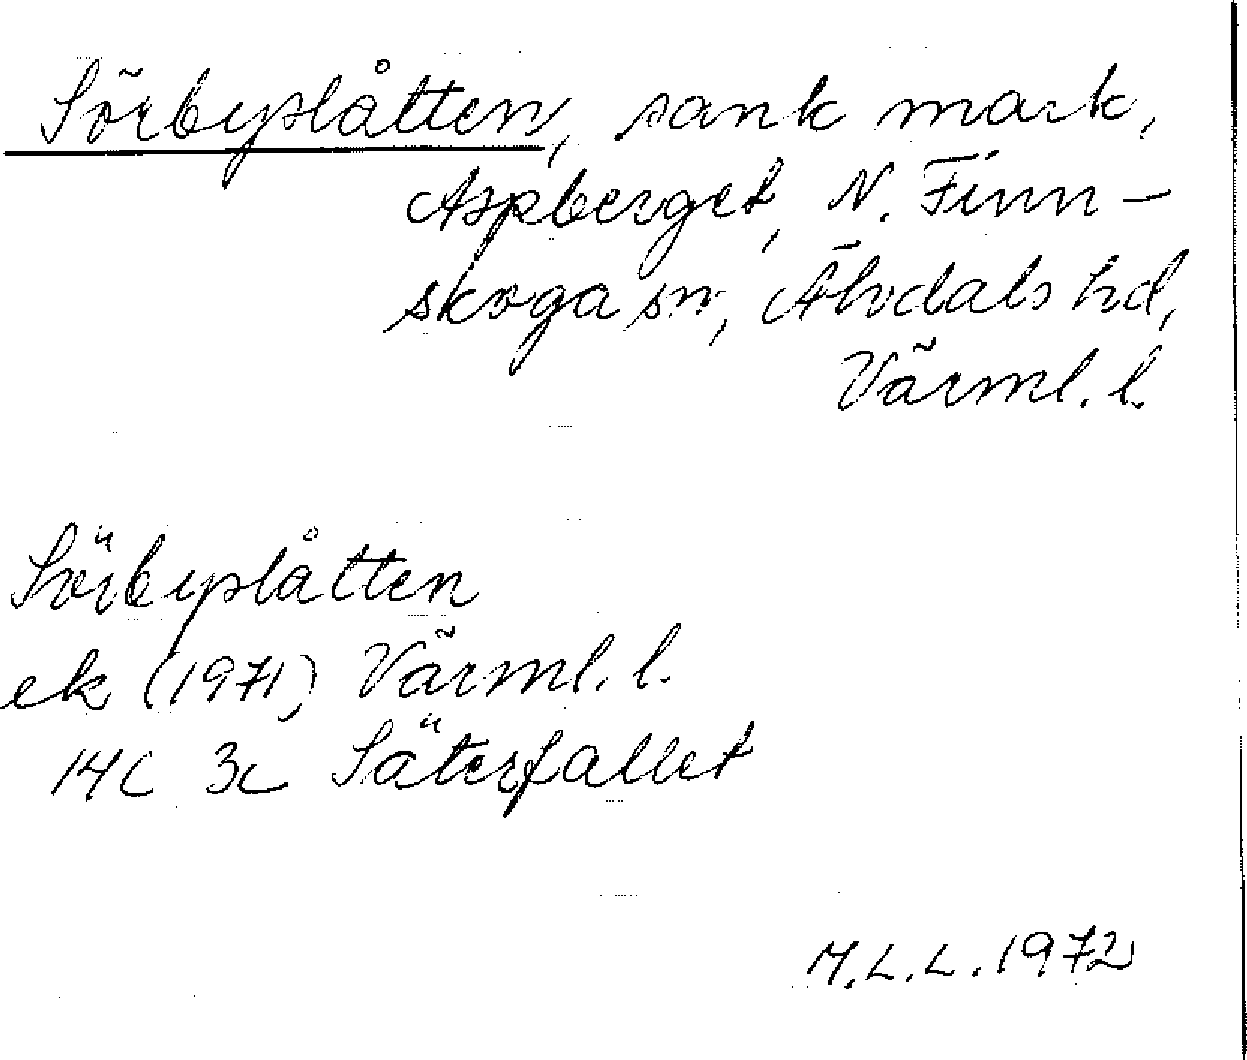 Sörbyslåtten, sank mark,
Aspberget, N. Finn-
skoga sn, Älvdals hd,
Värml. l.
Sörbyslåtten
ek (1971) Värml. l.
14C 3c Säterfallet
M.L.L. 1972